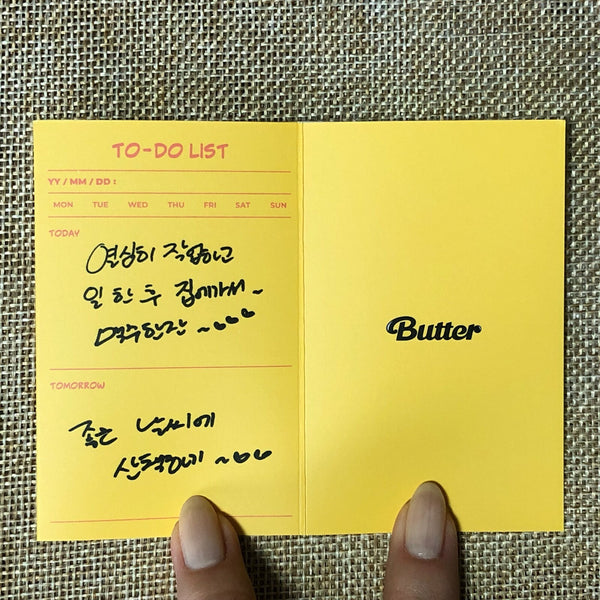 TO-DO LIST
YY / MM / DD :
MON TUE WED THU FRI SAT SUN
TODAY
열심히 작업하고
일 한 후 집에가서~
맥주한잔~
TOMORROW
좋은 날씨에
산책하기~
Butter